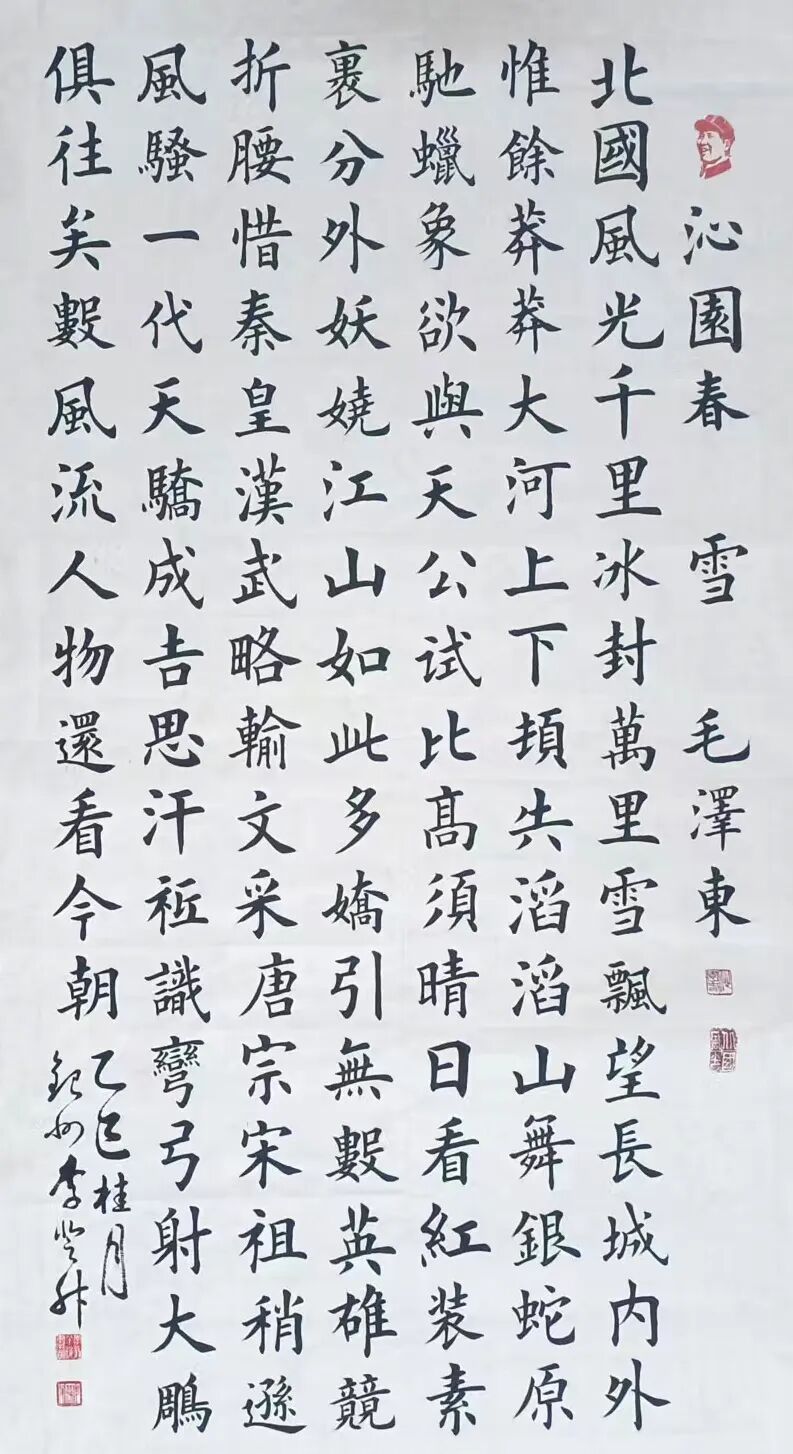 沁園春 雪 毛澤東
北國風光千里冰封萬里雪飄望長城内外
惟餘莽莽大河上下頓失滔滔山舞銀蛇原
馳蠟象欲與天公試比髙須晴日看紅装素
裹分外妖嬈江山如此多嬌引無數英雄競
折腰惜秦皇漢武略輸文采唐宗宋祖稍遜
風騷一代天驕成吉思汗祗識彎弓射大鵰
俱往矣數風流人物還看今朝
乙巳桂月
州李